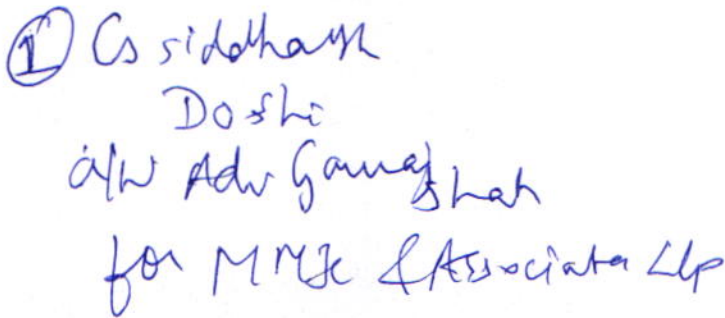 ① CS Siddharth
Doshi
a/w Adv Gauraj Shah
for MMJC & Associates LLP